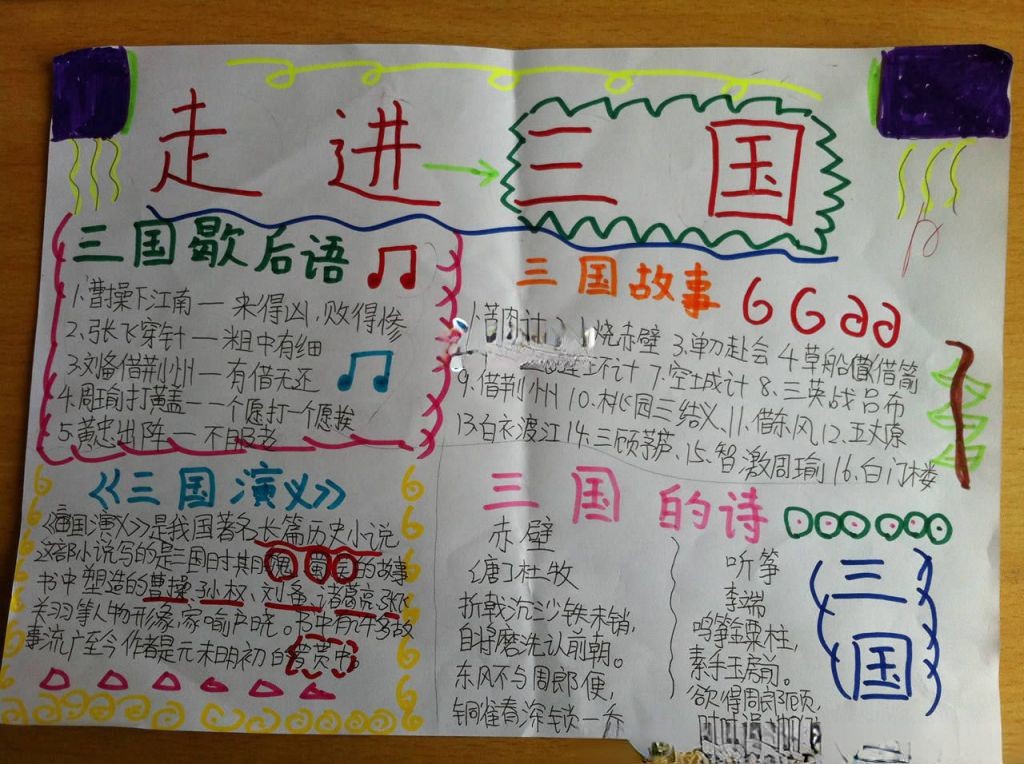 走进三国
三国歇后语
1.曹操下江南—来得凶,败得惨
2.张飞穿针—粗中有细
3.刘备借荆州—有借无还
4.周瑜打黄盖—一个愿打一个愿挨
5.黄忠出阵—不服老
三国故事
1.苦肉计 2. 烧赤壁 3.单刀赴会 4.草船借箭
连环计 7.空城计 8.三英战吕布
9.借荆州 10.桃园三结义、11.借东风、12.五丈原
13白衣渡江 14.三顾茅庐、15.智激周瑜 16.白门楼
《三国演义》
国演义》是我国著名长篇历史小说
这部小说写的是三国时 的故事
书中塑造的曹操、孙权、刘备、诸葛亮、
关羽等人物形象,家喻户晓。书中有许多故
事流广至今作者是元末明初的
三国的诗
赤壁
(唐)杜牧
折戟沉沙铁未销,
自将磨洗认前朝。
东风不与周郎便,
铜雀春深锁二乔
听筝
李端
鸣筝金粟柱,
素手玉房前。
欲得周郎顾,
三国